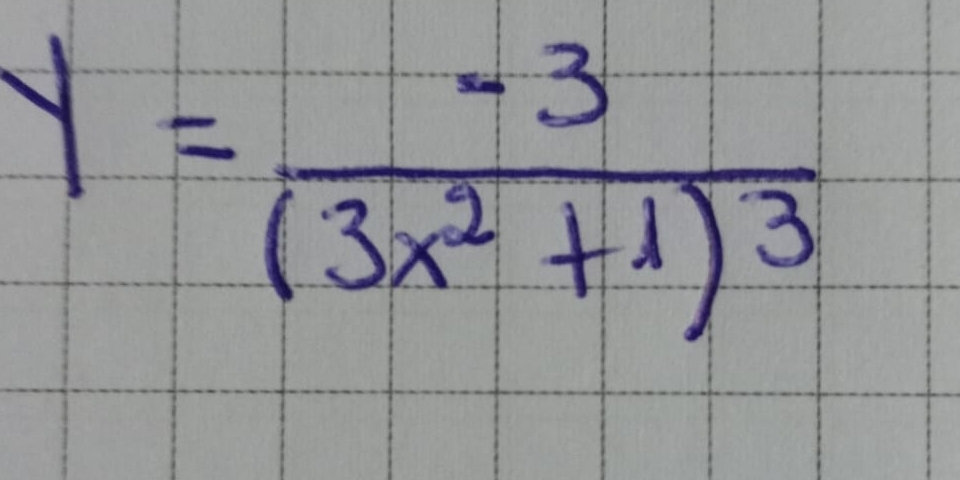 Y = -3 / (3x² + 1)³